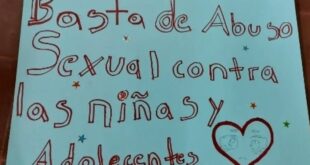 Basta de Abuso
Sexual contra
las niñas y
Adolecentes